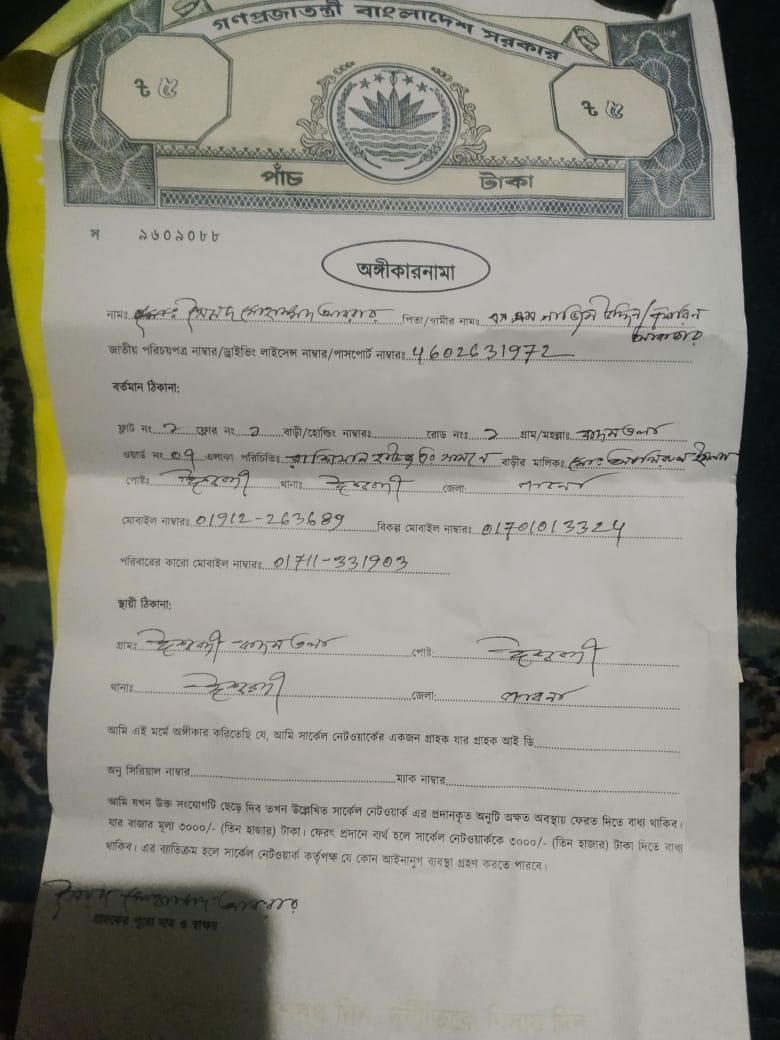 গণপ্রজাতন্ত্রী বাংলাদেশ সরকার
৳ ৫ ৳ ৫
পাঁচ টাকা
স ৯৬০৯০৮৮
অঙ্গীকারনামা
নামঃ সৈয়দ মোহাম্মদ আবরার পিতা/স্বামীর নামঃ
জাতীয় পরিচয়পত্র নাম্বার/ড্রাইভিং লাইসেন্স নাম্বার/পাসপোর্ট নাম্বারঃ 4602631972
বর্তমান ঠিকানা:
ফ্লাট নং ২ ফ্লোর নং ২ বাড়ী/হোল্ডিং নাম্বারঃ রোড নংঃ ২ গ্রাম/মহল্লাঃ কদমতলা
ওয়ার্ড নং ০৭ এলাকা পরিচিতিঃ বাড়ীর মালিকঃ
পোষ্টঃ ঈশ্বরদী থানাঃ ঈশ্বরদী জেলা: পাবনা
মোবাইল নাম্বারঃ 01912-263689 বিকল্প মোবাইল নাম্বারঃ 01701013324
পরিবারের কারো মোবাইল নাম্বারঃ 01711-331903
স্থায়ী ঠিকানা:
গ্রামঃ ঈশ্বরদী কদমতলা পোষ্ট: ঈশ্বরদী
থানাঃ ঈশ্বরদী জেলা: পাবনা
আমি এই মর্মে অঙ্গীকার করিতেছি যে, আমি সার্কেল নেটওয়ার্কের একজন গ্রাহক যার গ্রাহক আই ডি
অনু সিরিয়াল নাম্বার ম্যাক নাম্বার
আমি যখন উক্ত সংযোগটি ছেড়ে দিব তখন উল্লেখিত সার্কেল নেটওয়ার্ক এর প্রদানকৃত অনুটি অক্ষত অবস্থায় ফেরত দিতে বাধ্য থাকিব।
যার বাজার মূল্য ৩০০০/- (তিন হাজার) টাকা। ফেরৎ প্রদানে ব্যর্থ হলে সার্কেল নেটওয়ার্ককে ৩০০০/- (তিন হাজার) টাকা দিতে বাধ্য
থাকিব। এর ব্যতিক্রম হলে সার্কেল নেটওয়ার্ক কর্তৃপক্ষ যে কোন আইনানুগ ব্যবস্থা গ্রহণ করতে পারবে।
সৈয়দ মোহাম্মদ আবরার
গ্রাহকের পুরো নাম ও স্বাক্ষর